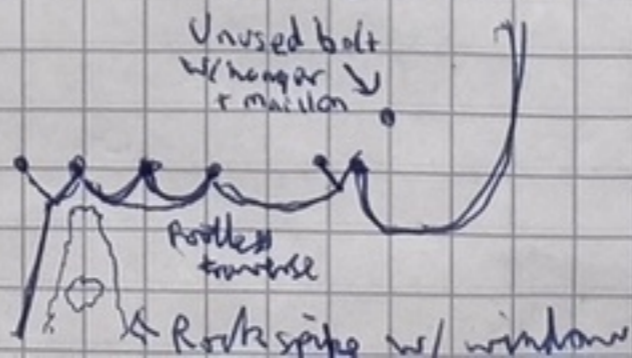 Unused bolt
w/ hanger
+ maillon
Footless
traverse
Rock spike w/ window